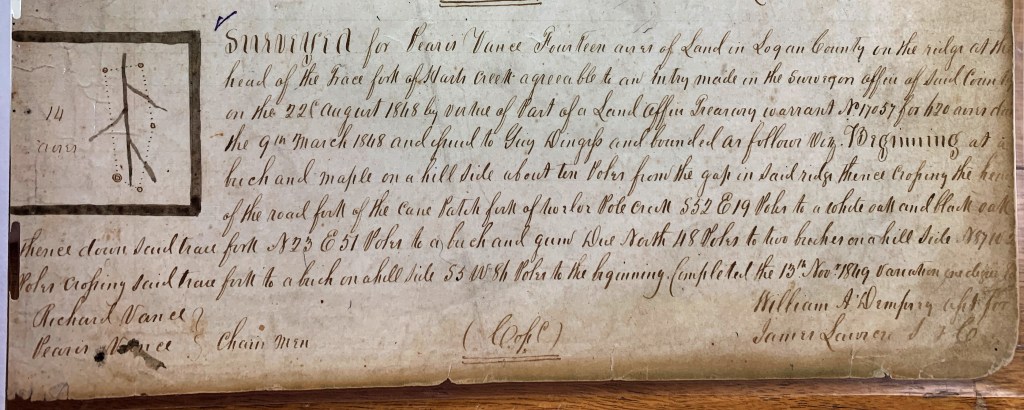 14
acres
Surveyed for Pearis Vance Fourteen acres of Land in Logan County on the ridge at the
head of the Trace fork of Harts Creek agreeable to an Entry made in the Surveyors office of Said County
on the 22d August 1848 by virtue of Part of a Land office Treasury warrant No 17057 for 620 acres
the 9th March 1848 and Guy Dingess and bounded as follows Viz. Beginning at a
buch and maple on a hill side about ten Poles from the gap in Said ridge thence Crossing the
of the road fork of the Cane Patch fork of Pole Creek S52 E19 Poles to a white oak and black oak
thence down Said trace fork N23 E51 Poles to a buch and gum Due North 48 Poles to two beeches on a hill Side
Poles Crossing Said trace fork to a buch on a hill Side S5 W84 Poles to the beginning. Completed the 13th Novr 1849 Variation one degree
William A Dempsey asst for
Richard Vance
James Lawson S L C
Pearis Vance
Chain men
(Copd)